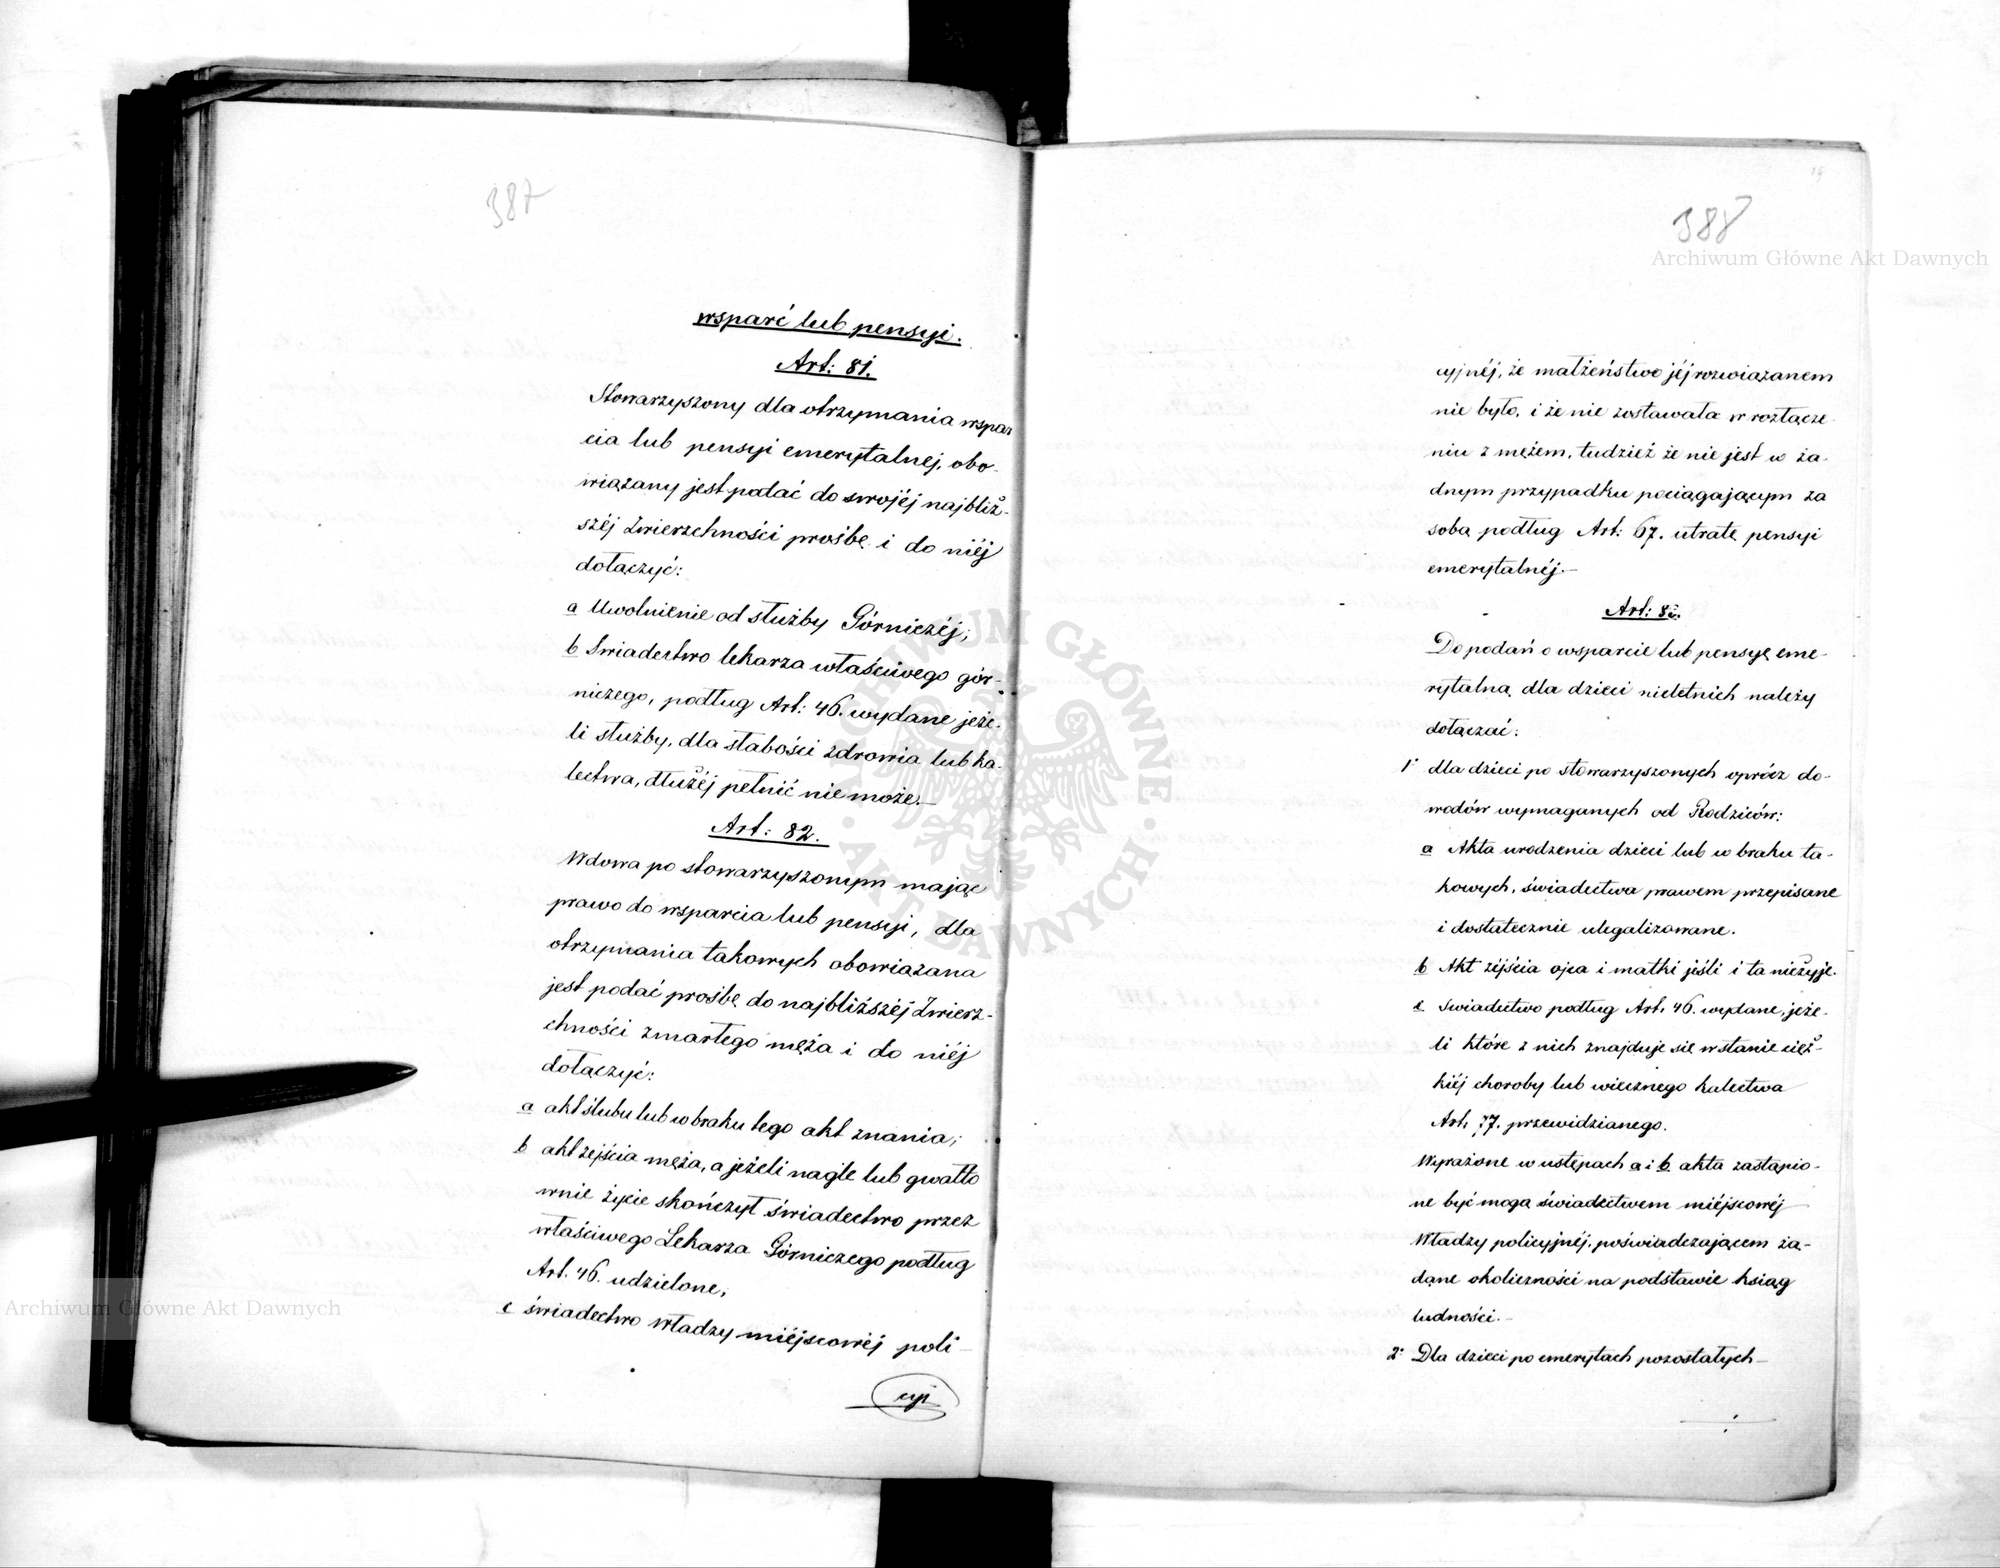 387
wsparć lub pensyi.
Art: 81.
Stowarzyszony dla otrzymania wspar
cia lub pensyi emerytalnej, obo-
wiązany jest podać do swojéj najbliż-
széj Zwierzchności prośbę i do niéj
dołączyć:
a Uwolnienie od służby Górniczéj;
b Świadectwo lekarza właściwego gór-
niczego, podług Art: 46. wydane jeże-
li służby, dla słabości zdrowia lub ka-
lectwa, dłużéj pełnić nie może.—
Art: 82.
Wdowa po stowarzyszonym mając
prawo do wsparcia lub pensyi, dla
otrzymania takowych obowiązana
jest podać prośbę do najbliższéj Zwierz-
chności zmarłego męża i do niéj
dołączyć:
a akt ślubu lub w braku tego akt znania;
b akt zejścia męża, a jeżeli nagle lub gwałto
wnie życie skończył świadectwo przez
właściwego Lekarza Górniczego podług
Art. 46. udzielone,
c świadectwo Władzy miéjscowéj poli-
cyj
388
Archiwum Główne Akt Dawnych
cyjnéj, że małżeństwo jéj rozwiązanem
nie było, i że nie zostawała w rozłącze-
niu z mężem, tudzież że nie jest w ża-
dnym przypadku pociągającym za
sobą podług Art: 67. utratę pensyi
emerytalnéj.—
Art: 83.
Do podań o wsparcie lub pensyę eme-
rytalną dla dzieci nieletnich należy
dołączać:
1° dla dzieci po stowarzyszonych oprócz do-
wodów wymaganych od Rodziców:
a Akta urodzenia dzieci lub w braku ta-
kowych, świadectwa prawem przepisane
i dostatecznie ulegalizowane.
b Akt zéjścia ojca i matki jeśli i ta nieżyje.
c Świadectwo podług Art. 46. wydane, jeże-
li które z nich znajduje się w stanie cięż-
kiéj choroby lub wiecznego kalectwa
Art. 77. przewidzianego.
Wyrażone w ustępach a i b akta zastąpio-
ne być mogą świadectwem miéjscowéj
Władzy policyjnéj, poświadczającem żą-
dane okoliczności na podstawie ksiąg
ludności.—
2° Dla dzieci po emerytach pozostałych—
ARCHIWUM GŁÓWNE · AKT DAWNYCH ·
Archiwum Główne Akt Dawnych